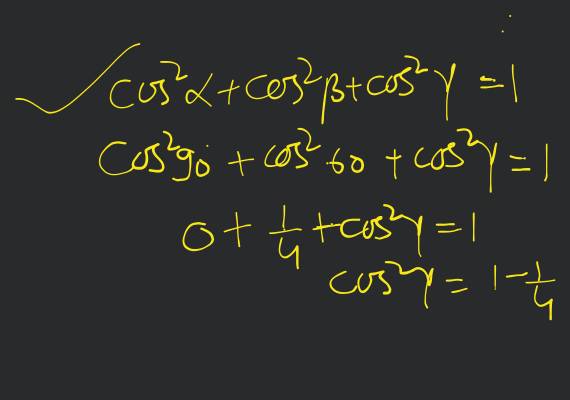 cos²α + cos²β + cos²γ = 1
cos²90 + cos²60 + cos²γ = 1
0 + 1/4 + cos²γ = 1
cos²γ = 1 - 1/4